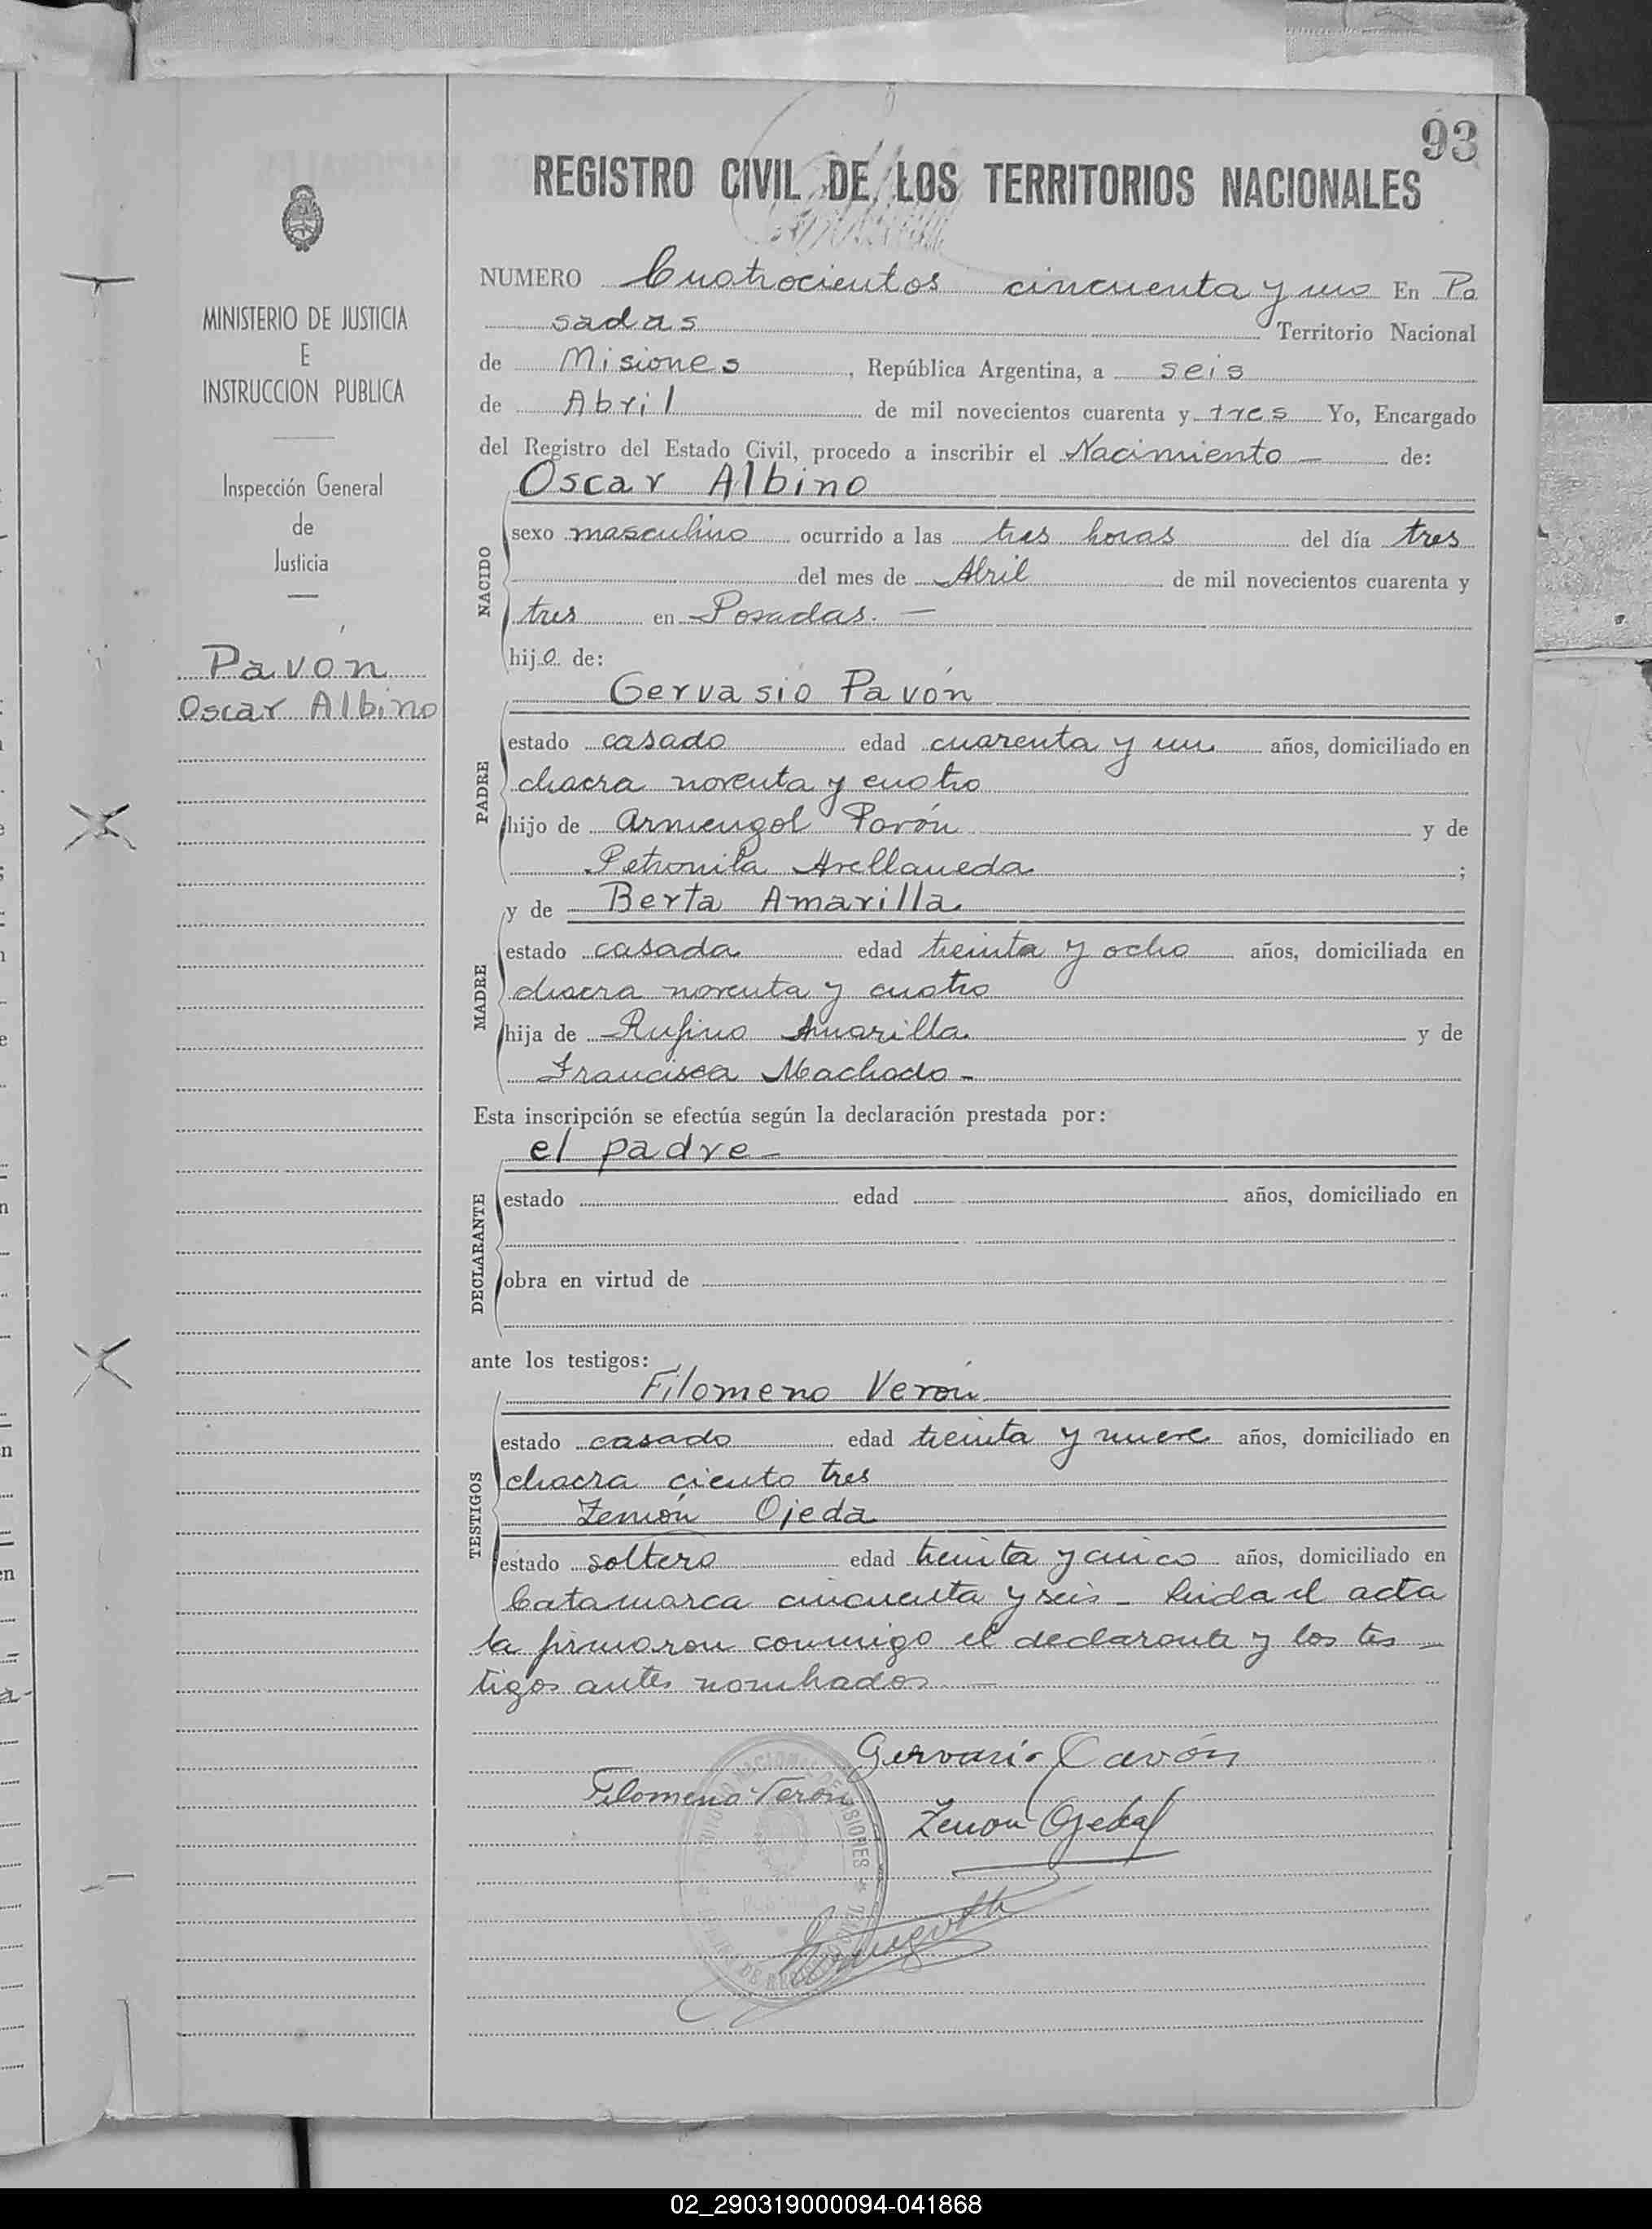 93
REGISTRO CIVIL DE LOS TERRITORIOS NACIONALES
MINISTERIO DE JUSTICIA
E
INSTRUCCION PUBLICA
Inspección General
de
Justicia
Pavón
Oscar Albino
NUMERO Cuatrocientos cincuenta y uno En Po
sadas Territorio Nacional
de Misiones, República Argentina, a seis
de Abril de mil novecientos cuarenta y tres Yo, Encargado
del Registro del Estado Civil, procedo a inscribir el Nacimiento — de:
Oscar Albino
NACIDO
sexo masculino ocurrido a las tres horas del día tres
del mes de Abril de mil novecientos cuarenta y
tres en Posadas. —
hijo de:
Gervasio Pavón
PADRE
estado casado edad cuarenta y un años, domiciliado en
chacra noventa y cuatro
hijo de Armengol Pavón y de
Petronila Avellaneda ;
y de Berta Amarilla
MADRE
estado casada edad treinta y ocho años, domiciliada en
chacra noventa y cuatro
hija de Rufino Amarilla y de
Francisca Machado -
Esta inscripción se efectúa según la declaración prestada por:
el padre -
DECLARANTE
estado edad años, domiciliado en
obra en virtud de
ante los testigos:
Filomeno Verón
TESTIGOS
estado casado edad treinta y nueve años, domiciliado en
chacra ciento tres
Zenón Ojeda
estado soltero edad treinta y cinco años, domiciliado en
Catamarca cincuenta y seis - Leida el acta
la firmaron conmigo el declarante y los tes -
tigos antes nombrados. —
Gervasio Pavón
Filomeno Verón
Zenon Ojeda
02_290319000094-041868